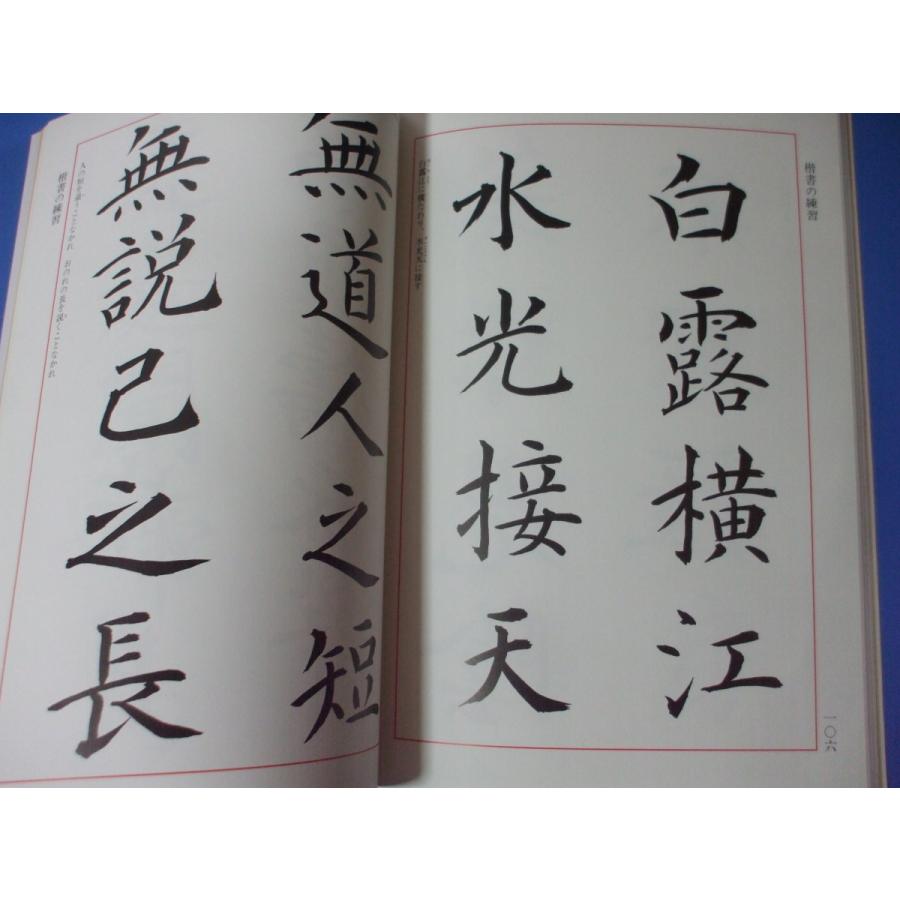 楷書の練習
白露橫江
水光接天
白露江に横たわり、水光天に接す
一〇六
無道人之短
無説己之長
人の短を道うことなかれ、おのれの長を説くことなかれ
楷書の練習